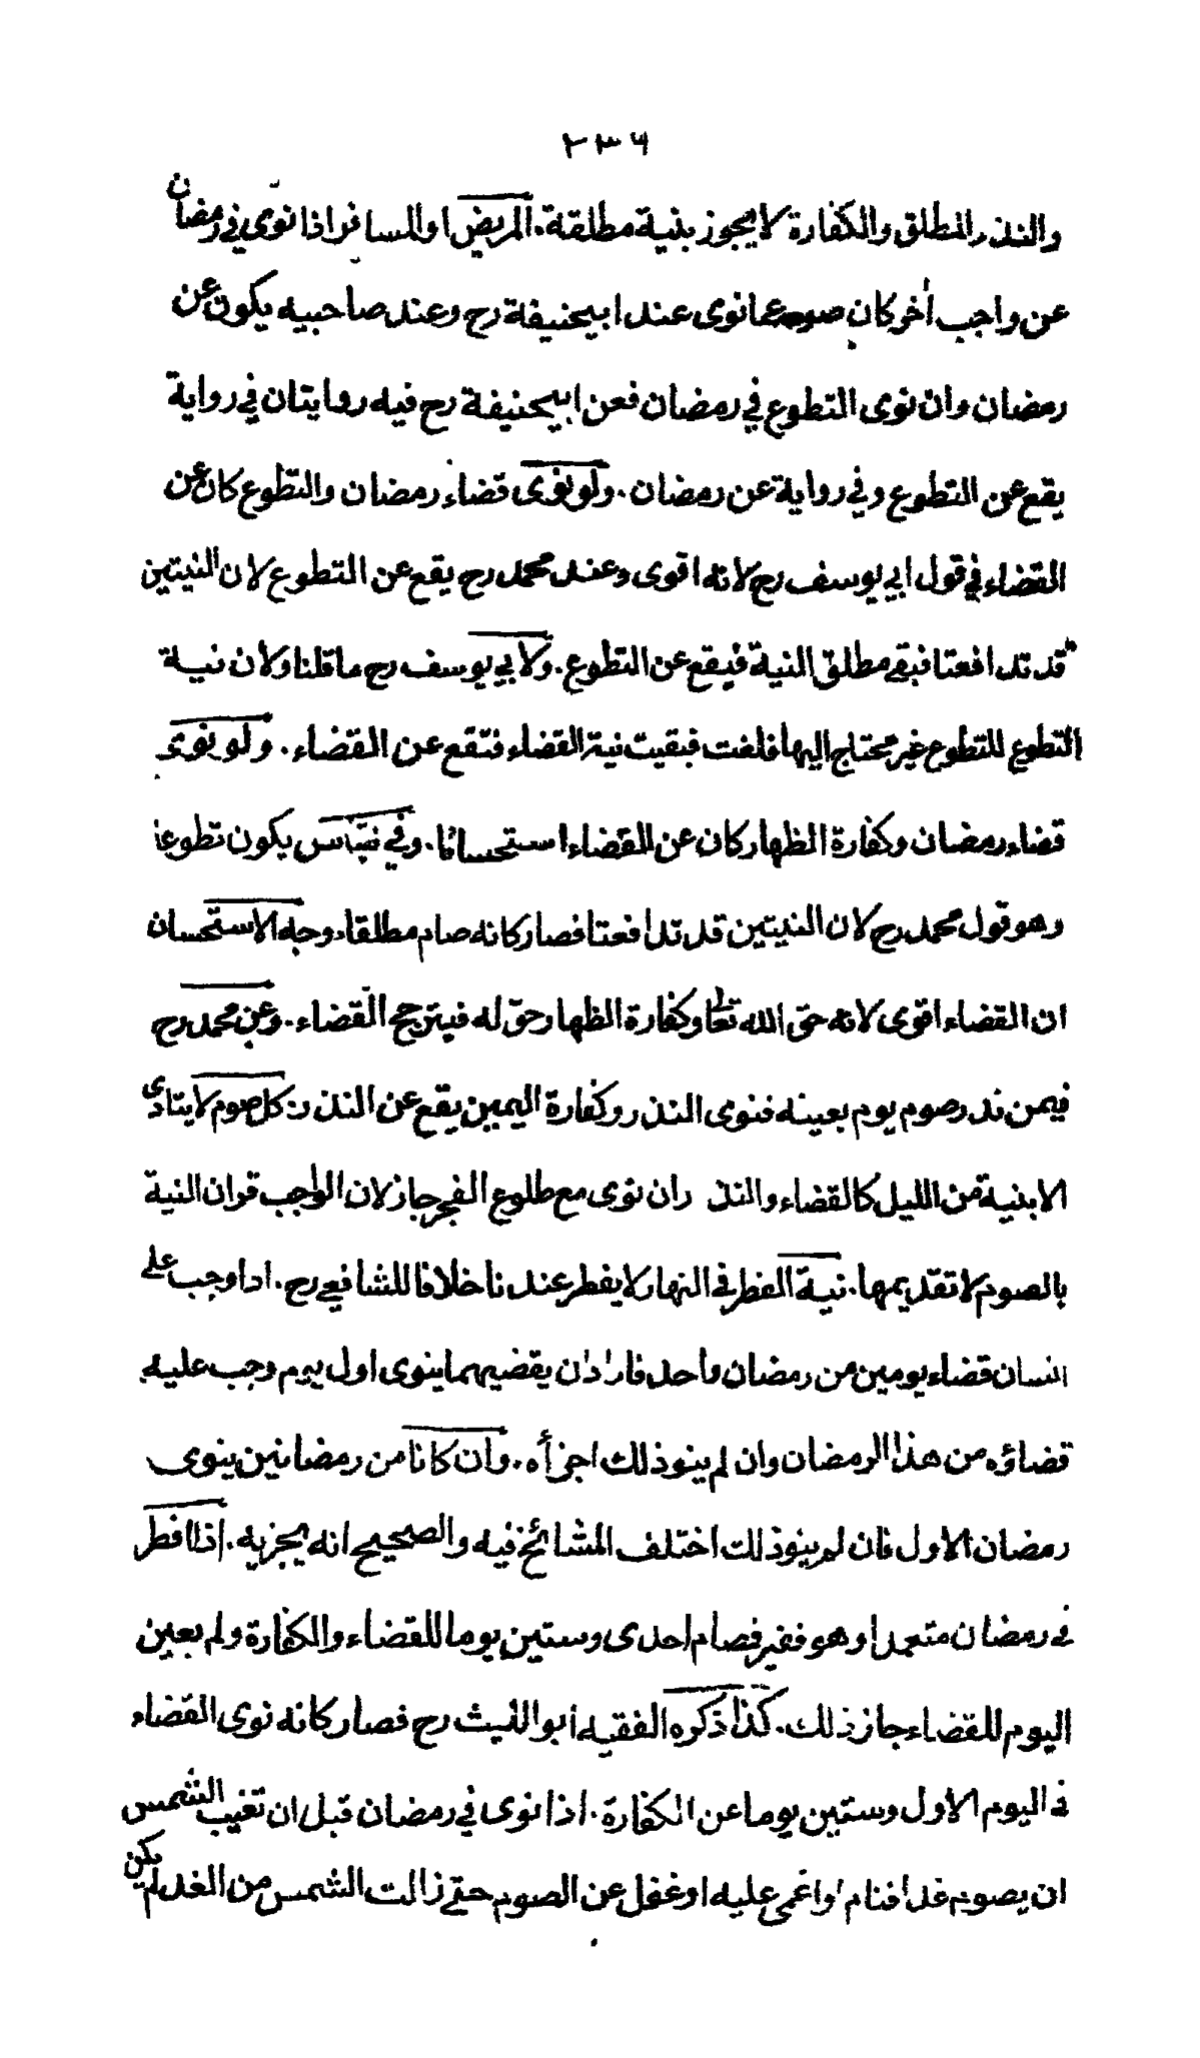 ٢٣٦
والنذر المطلق والكفارة لا يجوز بنية مطلقة. المريض او المسافر اذا نوى في رمضان
عن واجب أخر كان صومه عما نوى عند ابيحنيفة رح وعند صاحبيه يكون عن
رمضان وان نوى التطوع في رمضان فعن ابيحنيفة رح فيه روايتان في رواية
يقع عن التطوع وفي رواية عن رمضان. ولو نوى قضاء رمضان والتطوع كان عن
القضاء في قول ابي يوسف رح لانه اقوى وعند محمد رح يقع عن التطوع لان النيتين
قد تدافعتا فبقي مطلق النية فيقع عن التطوع. ولابي يوسف رح ما قلنا ولان نية
التطوع للتطوع غير محتاج اليها فلغت فبقيت نية القضاء فتقع عن القضاء. ولو نوى
قضاء رمضان وكفارة الظهار كان عن القضاء استحسانا. وفي قياس يكون تطوعا
وهو قول محمد رح لان النيتين قد تدافعتا فصار كانه صام مطلقا. وجه الاستحسان
ان القضاء اقوى لانه حق الله تعا وكفارة الظهار حق له فيترجح القضاء. وعن محمد رح
فيمن نذر صوم يوم بعينه فنوى النذر وكفارة اليمين يقع عن النذر. كل صوم لا يتادى
الا بنية من الليل كالقضاء والنذر ان نوى مع طلوع الفجر جاز لان الواجب قران النية
بالصوم لا تقديمها. نية الفطر في النهار لا يفطر عندنا خلافا للشافعي رح. اذا وجب على
انسان قضاء يومين من رمضان واحد فاراد ان يقضيهما ينوى اول يوم وجب عليه
قضاؤه من هذا الرمضان وان لم ينو ذلك اجزأه. وان كانا من رمضانين ينوى
رمضان الاول فان لم ينو ذلك اختلف المشائخ فيه والصحيح انه يجزيه. اذا افطر
في رمضان متعمدا وهو فقير فصام احدى وستين يوما للقضاء والكفارة ولم يعين
اليوم للقضاء جاز ذلك. كذا ذكره الفقيه أبو الليث رح فصار كانه نوى القضاء
في اليوم الاول وستين يوما عن الكفارة. اذا نوى في رمضان قبل ان تغيب الشمس
ان يصوم غدا فنام او اغمى عليه او غفل عن الصوم حتى زالت الشمس من الغد لم يكن